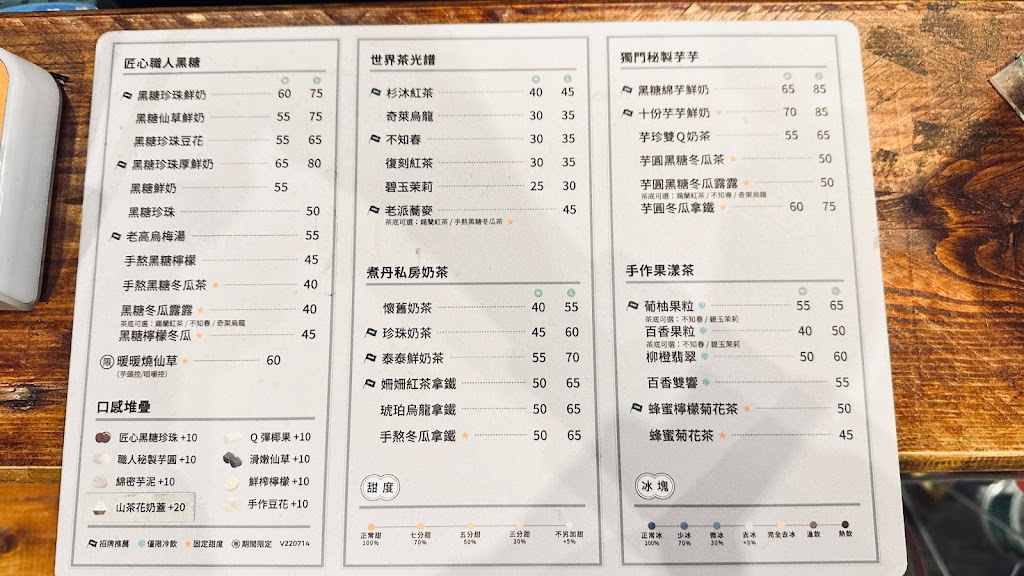 匠心職人黑糖
M L
黑糖珍珠鮮奶 60 75
黑糖仙草鮮奶 55 75
黑糖珍珠豆花 55 65
黑糖珍珠厚鮮奶 65 80
黑糖鮮奶 55
黑糖珍珠 50
老高烏梅湯 55
手熬黑糖檸檬 45
手熬黑糖冬瓜茶 40
黑糖冬瓜露露 40
茶底可選：錫蘭紅茶 / 不知春 / 奇萊烏龍
黑糖檸檬冬瓜 45
限 暖暖燒仙草 60
(芋頭控/咀嚼控)
口感堆疊
匠心黑糖珍珠 +10
職人秘製芋圓 +10
綿密芋泥 +10
山茶花奶蓋 +20
Q 彈椰果 +10
滑嫩仙草 +10
鮮榨檸檬 +10
手作豆花 +10
招牌推薦 僅限冷飲 固定甜度 限 期間限定 V220714
世界茶光譜
M L
杉沐紅茶 40 45
奇萊烏龍 30 35
不知春 30 35
復刻紅茶 30 35
碧玉茉莉 25 30
老派蕎麥 45
茶底可選：錫蘭紅茶 / 手熬黑糖冬瓜茶
煮丹私房奶茶
M L
懷舊奶茶 40 55
珍珠奶茶 45 60
泰泰鮮奶茶 55 70
姍姍紅茶拿鐵 50 65
琥珀烏龍拿鐵 50 65
手熬冬瓜拿鐵 50 65
甜度
正常甜 七分甜 五分甜 三分甜 不另加甜
100% 70% 50% 30% <5%
獨門秘製芋芋
M L
黑糖綿芋鮮奶 65 85
十份芋芋鮮奶 70 85
芋珍雙Ｑ奶茶 55 65
芋圓黑糖冬瓜茶 50
芋圓黑糖冬瓜露露 50
茶底可選：錫蘭紅茶 / 不知春 / 奇萊烏龍
芋圓冬瓜拿鐵 60 75
手作果漾茶
M L
葡柚果粒 55 65
茶底可選：不知春 / 碧玉茉莉
百香果粒 40 50
茶底可選：不知春 / 碧玉茉莉
柳橙翡翠 50 60
百香雙響 55
蜂蜜檸檬菊花茶 50
蜂蜜菊花茶 45
冰塊
正常冰 少冰 微冰 去冰 完全去冰 溫飲 熱飲
100% 70% 30% <5%